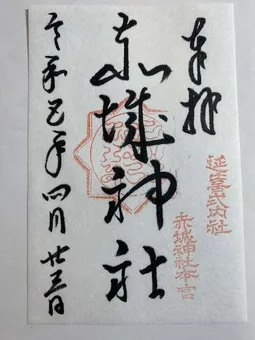 奉拝
延喜式内社
赤城神社本宮
赤城神社
令和巳年四月廿三日